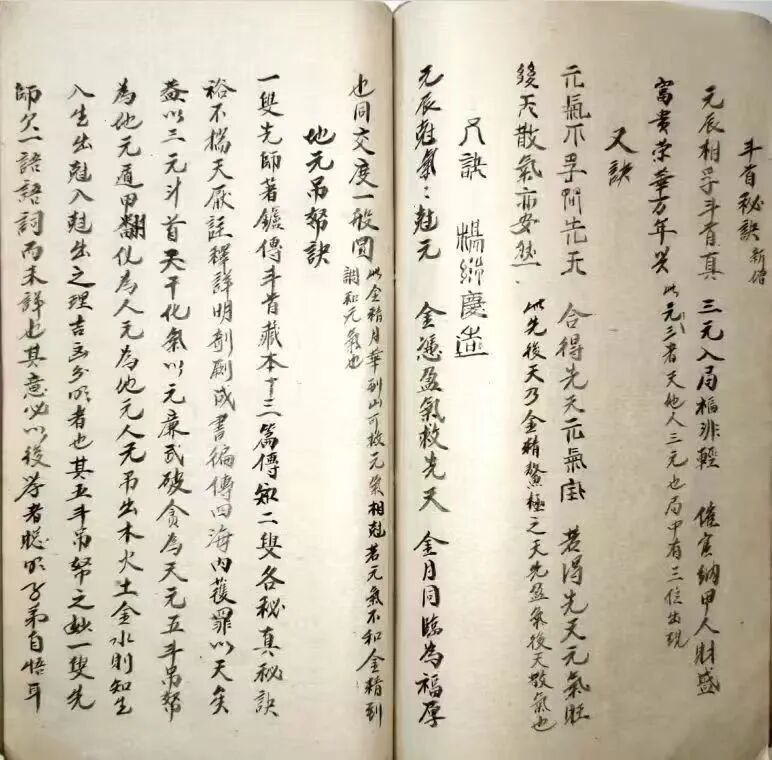 斗首秘訣 新增
元辰相孚斗首真 三元入局福非輕 催官納甲人財盛
富貴荣華万年興 此元三者天地人三元也局中有三位出現
又訣
元氣不孚問先天 合得先天元氣 若得先天元氣旺
後天散氣亦安然 此先後天乃金精鰲極之天先盈氣後天散氣也
又訣 楊 慶
元辰尅氣〻尅元 金憑盈氣救先天 金月同臨為福厚
也同交度一般圓 此金精月華到山可救元氣相尅若元氣不和金精到
調和元氣也
地元吊替訣
一叟先師著 傳斗首藏本 三篇傳 二叟各秘真秘訣
裕不 天 註釋詳明 刷成書徧傳四海内獲罪以天矣
益以三元斗首天干化氣以元廉武破貪為天元五斗吊替
為地元遁甲翻 為人元為地元人元吊出木火土金水則知生
入生出尅入尅出之理吉凶分明者也其五斗吊替之妙一叟先
師欠一語語詞而未詳也其意必以後学者聡明子弟自悟耳